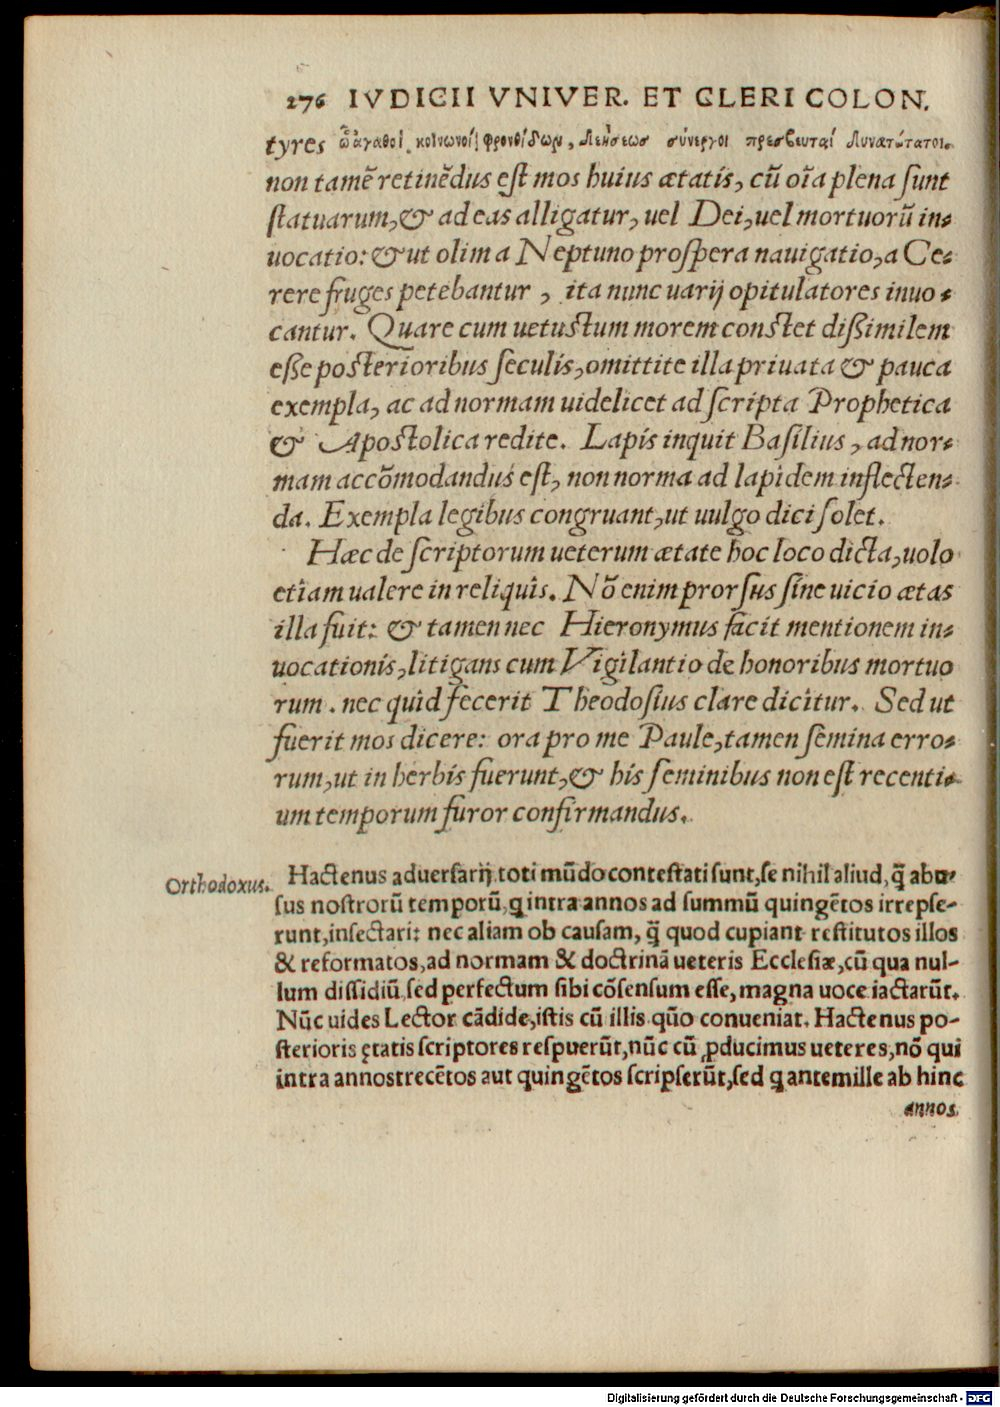 276 IVDICII VNIVER. ET CLERI COLON.
tyres ὦ ἀγαθοὶ κοινωνοὶ φροντίδων, δεήσεως σύνεργοι πρεσβευταὶ δυνατώτατοι.
non tamẽ retinẽdus eſt mos huius ætatis, cũ oĩa plena ſunt
ſtatuarum, & ad eas alligatur, uel Dei, uel mortuorũ in⸗
uocatio: & ut olim a Neptuno proſpera nauigatio, a Ce⸗
rere fruges petebantur, ita nunc uarij opitulatores inuo⸗
cantur. Quare cum uetuſtum morem conſtet dißimilem
eße poſterioribus ſeculis, omittite illa priuata & pauca
exempla, ac ad normam uidelicet ad ſcripta Prophetica
& Apoſtolica redite. Lapis inquit Baſilius, ad nor⸗
mam accõmodandus eſt, non norma ad lapidem inflecten⸗
da. Exempla legibus congruant, ut uulgo dici ſolet.
Hæc de ſcriptorum ueterum ætate hoc loco dicta, uolo
etiam ualere in reliquis. Nõ enim prorſus ſine uicio ætas
illa fuit: & tamen nec Hieronymus facit mentionem in⸗
uocationis, litigans cum Vigilantio de honoribus mortuo
rum. nec quid fecerit Theodoſius clare dicitur. Sed ut
fuerit mos dicere: ora pro me Paule, tamen ſemina erro⸗
rum, ut in herbis fuerunt, & his ſeminibus non eſt recenti⸗
um temporum furor confirmandus.
Orthodoxus. Hactenus aduerſarij toti mũdo conteſtati ſunt, ſe nihil aliud, q̃ abu⸗
ſus noſtrorũ temporũ, q intra annos ad ſummũ quingẽtos irrepſe-
runt, inſectari: nec aliam ob cauſam, q̃ quod cupiant reſtitutos illos
& reformatos, ad normam & doctrinã ueteris Eccleſiæ, cũ qua nul-
lum diſſidiũ, ſed perfectum ſibi cõſenſum eſſe, magna uoce iactarũt.
Nũc uides Lector cãdide, iſtis cũ illis quo conueniat. Hactenus po-
ſterioris ętatis ſcriptores reſpuerũt, nũc cũ ꝓducimus ueteres, nõ qui
intra annos trecẽtos aut quingẽtos ſcripſerũt, ſed q ante mille ab hinc
annos.
Digitalisierung gefördert durch die Deutsche Forschungsgemeinschaft - DFG